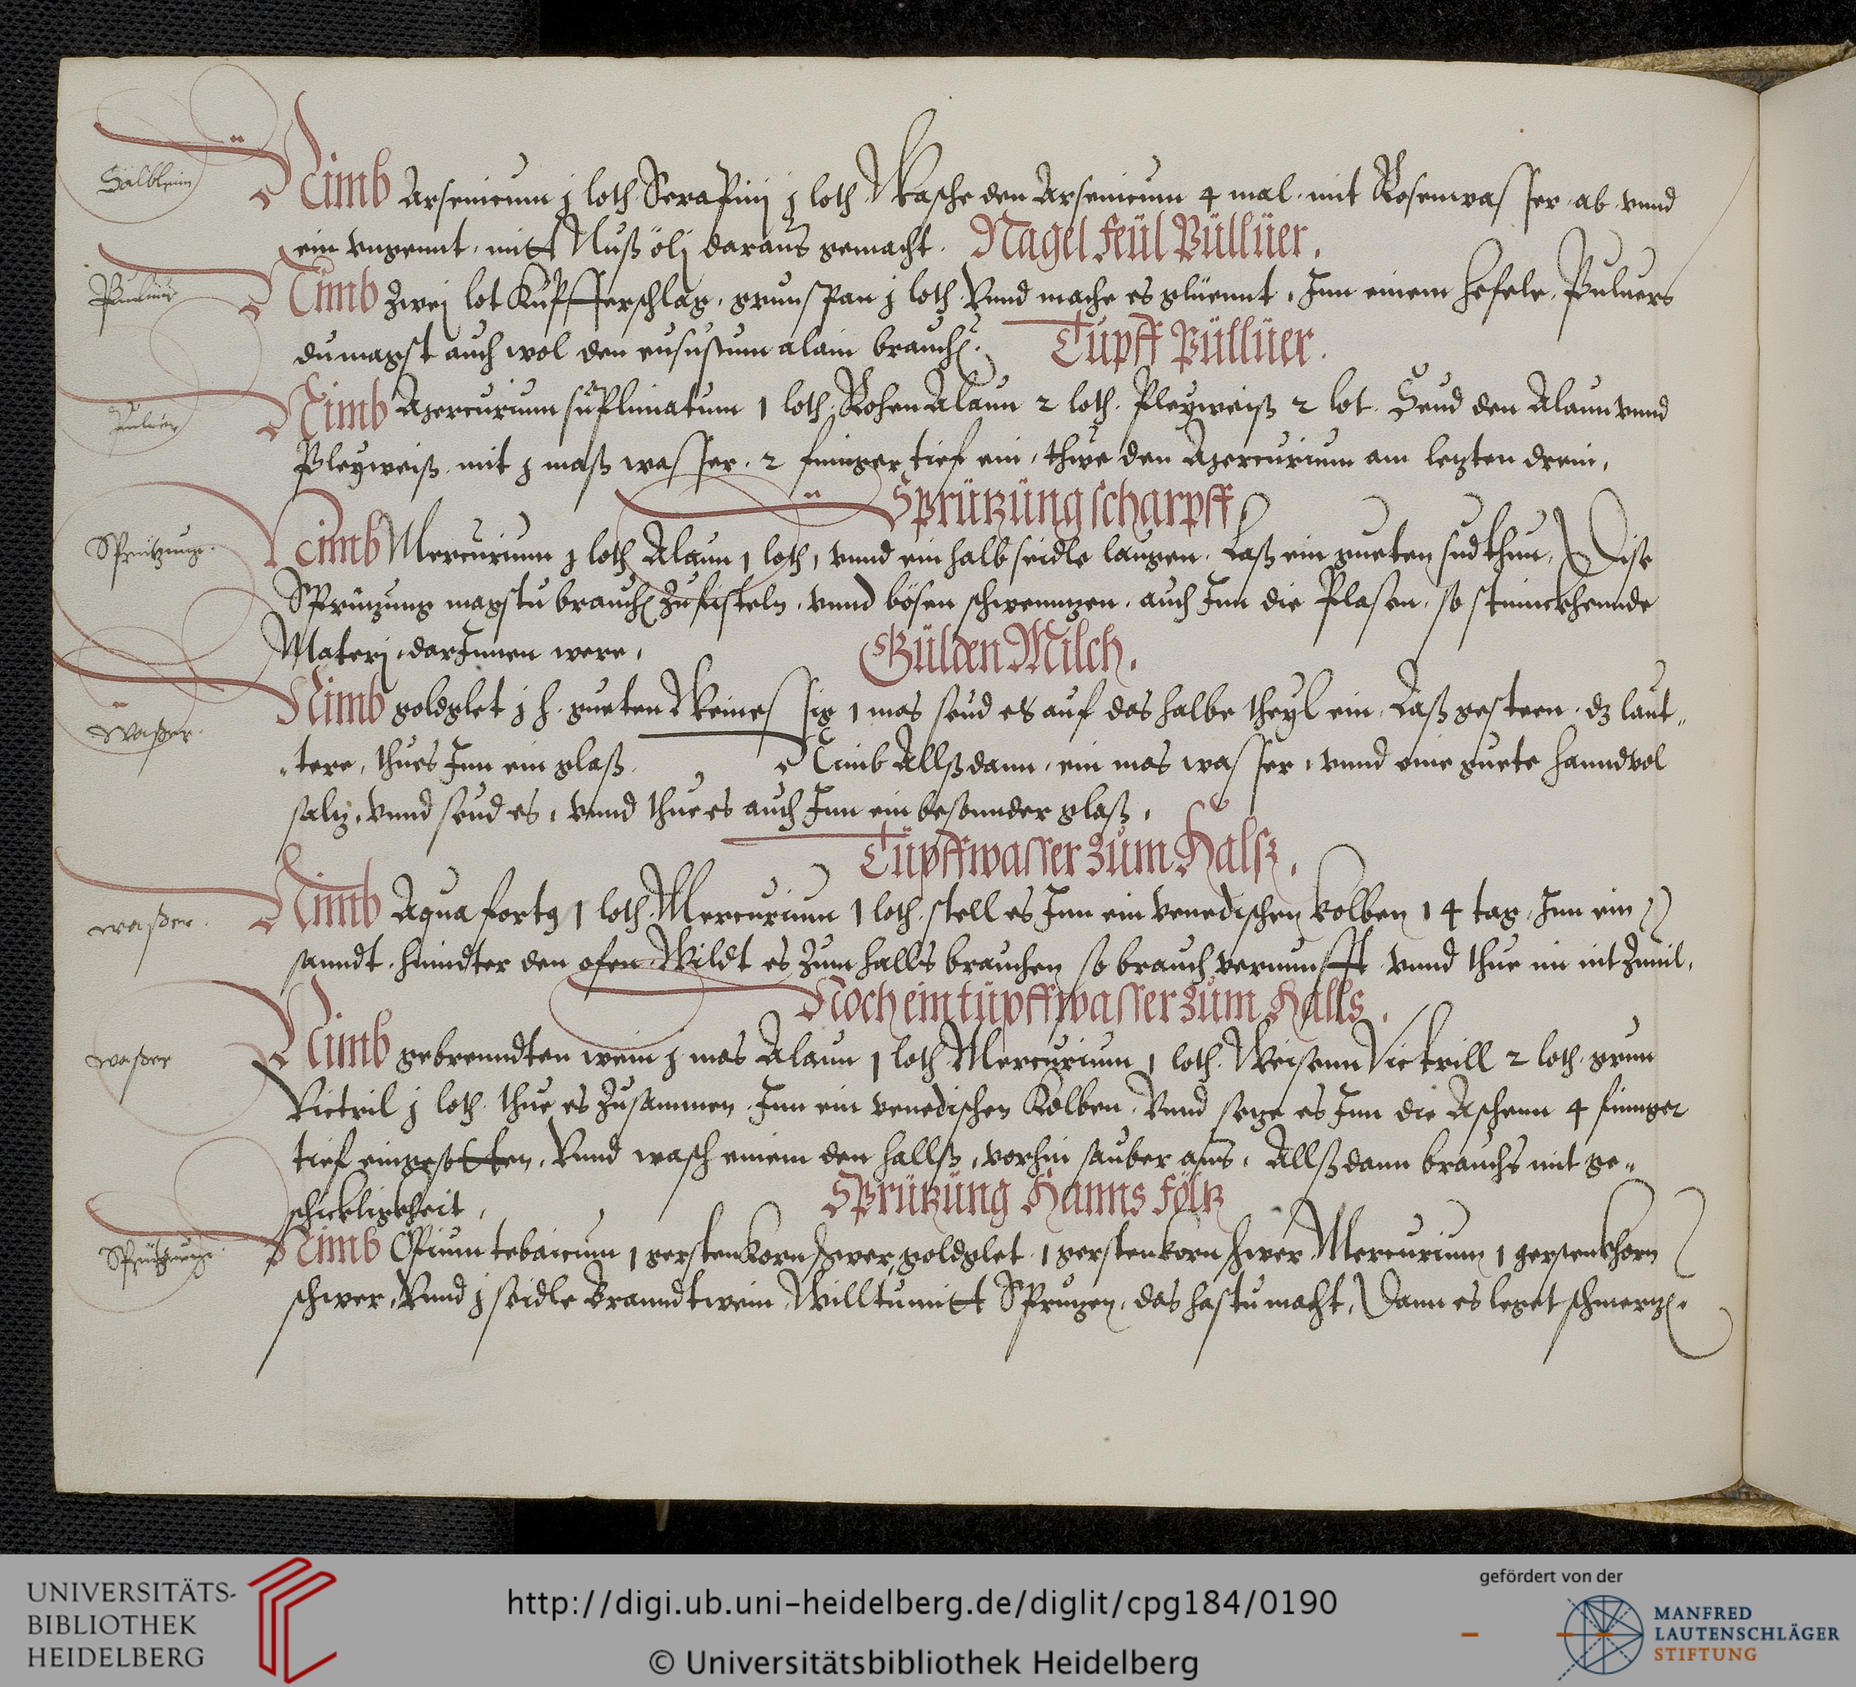 Sälblein
Nimb Arsenicum j loth Serapinj j loth Wasche den Arsenicum 4 mal mit Rosenwasser ab vnnd
ein vngennt, mitt Nußölj daraus gemacht. Nagel feül Püllüer.
Puluer
Nimb Zwej lot Kupfferschlag, grunspan j loth Vnnd mache es glüennt, Jnn einem hefele, Puluers
du magst auch wol den eusustum alain brauchen. Tüpff Püllüer.
Puluer
Nimb Mercurium suplimatum 1 loth, Rohen Alaun 2 loth, Pleyweiß 2 lot. Seud den Alaun vnnd
Pleyweiß mit j maß wasser, 2 finnger tief ein, thue den Mercurium am letzten drein,
Sprützüng scharpff
Spritzung.
Nimb Mercurium j loth Alaun 1 loth, vnnd ein halb seidle laugen, Laß ein gueten sud thun, Dise
Sprützung magstu brauchen Zu fisteln, vnnd bösen schwenntzen, auch Jnn die Plasen, so stinnckhennde
Materj, darJnnen were,
Gülden Milch.
Waßer.
Nimb goldglet j h. gueten Weinessig 1 mas seud es auf das halbe theyl ein, Laß gesteen, dz laut„
„tere, thues Jnn ein glaß. Nimb Allßdann, ein mas wasser, vnnd eine guete hanndvol
saltz, vnnd seud es, vnnd thue es auch Jnn ein besonnder glaß,
Tüpffwasser zum Halsz.
waßer.
Nimb Aqua forts 1 loth Mercurium 1 loth stell es Jnn ein venedischen kolben 14 tag, Jnn ein
sanndt, hinndter den ofen Wildt es Zum halls brauchen so brauch vernunfft vnnd thue im nit Zuuil,
Noch ein tüpffwasser zum Halls.
waßer
Nimb gebrenndten wein j mas Alaun 1 loth Mercurium 1 loth. Weisenn Victrill 2 loth, grun
Victril j loth, thue es Zusammen, Jnn ein venedischen Kolben, Vnnd setze es Jnn die Aschenn 4 finnger
tief eingesotten, Vnnd wasch einem den hallß, vorhin sauber aus, Allßdann brauchs mit ge„
schickligkheit,
Sprützüng Hanns Foltz
Sprützung.
Nimb Opium tebaicum 1 gerstenkorn schwer, goldglet 1 gerstenkorn schwer Mercurium 1 gerstenkhorn
schwer, Vnnd j seidle Branndtwein Willtu mitt Sprützen, das hastu macht, Dann es leget schmertzen.
UNIVERSITÄTS-
BIBLIOTHEK
HEIDELBERG
http://digi.ub.uni-heidelberg.de/diglit/cpg184/0190
© Universitätsbibliothek Heidelberg
gefördert von der
MANFRED
LAUTENSCHLÄGER
STIFTUNG